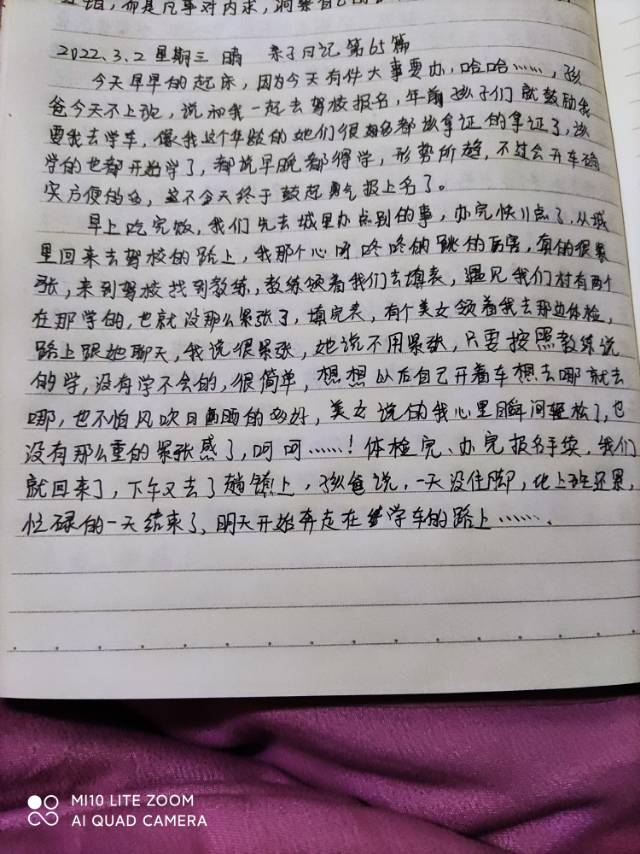 而是凡事对内求,洞察自己的
2022.3.2 星期三 晴 亲子日记 第65篇
今天早早的起床,因为今天有件大事要办,哈哈……,孩
爸今天不上班,说和我一起去驾校报名,年前孩子们就鼓励我
要我去学车,像我这个年龄的她们很多都该拿证的拿证了,该
学的也都开始学了,都说早晚都得学,形势所趋,不过会开车确
实方便的多,这不今天终于鼓起勇气报上名了。
早上吃完饭,我们先去城里办点别的事,办完快11点了,从城
里回来去驾校的路上,我那个心呀咚咚的跳的厉害,真的很紧
张,来到驾校找到教练,教练领着我们去填表,遇见我们村有两个
在那学的,也就没那么紧张了,填完表,有个美女领着我去那边体检,
路上跟她聊天,我说很紧张,她说不用紧张,只要按照教练说
的学,没有学不会的,很简单,想想以后自己开着车想去哪就去
哪,也不怕风吹日晒的多好,美女说的我心里瞬间轻松了,也
没有那么重的紧张感了,呵呵……!体检完、办完报名手续,我们
就回来了,下午又去了趟镇上,孩爸说,一天没住脚,比上班还累,
忙碌的一天结束了,明天开始奔走在学车的路上……。
MI10 LITE ZOOM
AI QUAD CAMERA